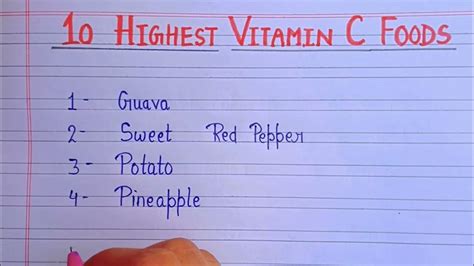 10 HIGHEST VITAMIN C FOODS
1- Guava
2- Sweet Red Pepper
3- Potato
4- Pineapple